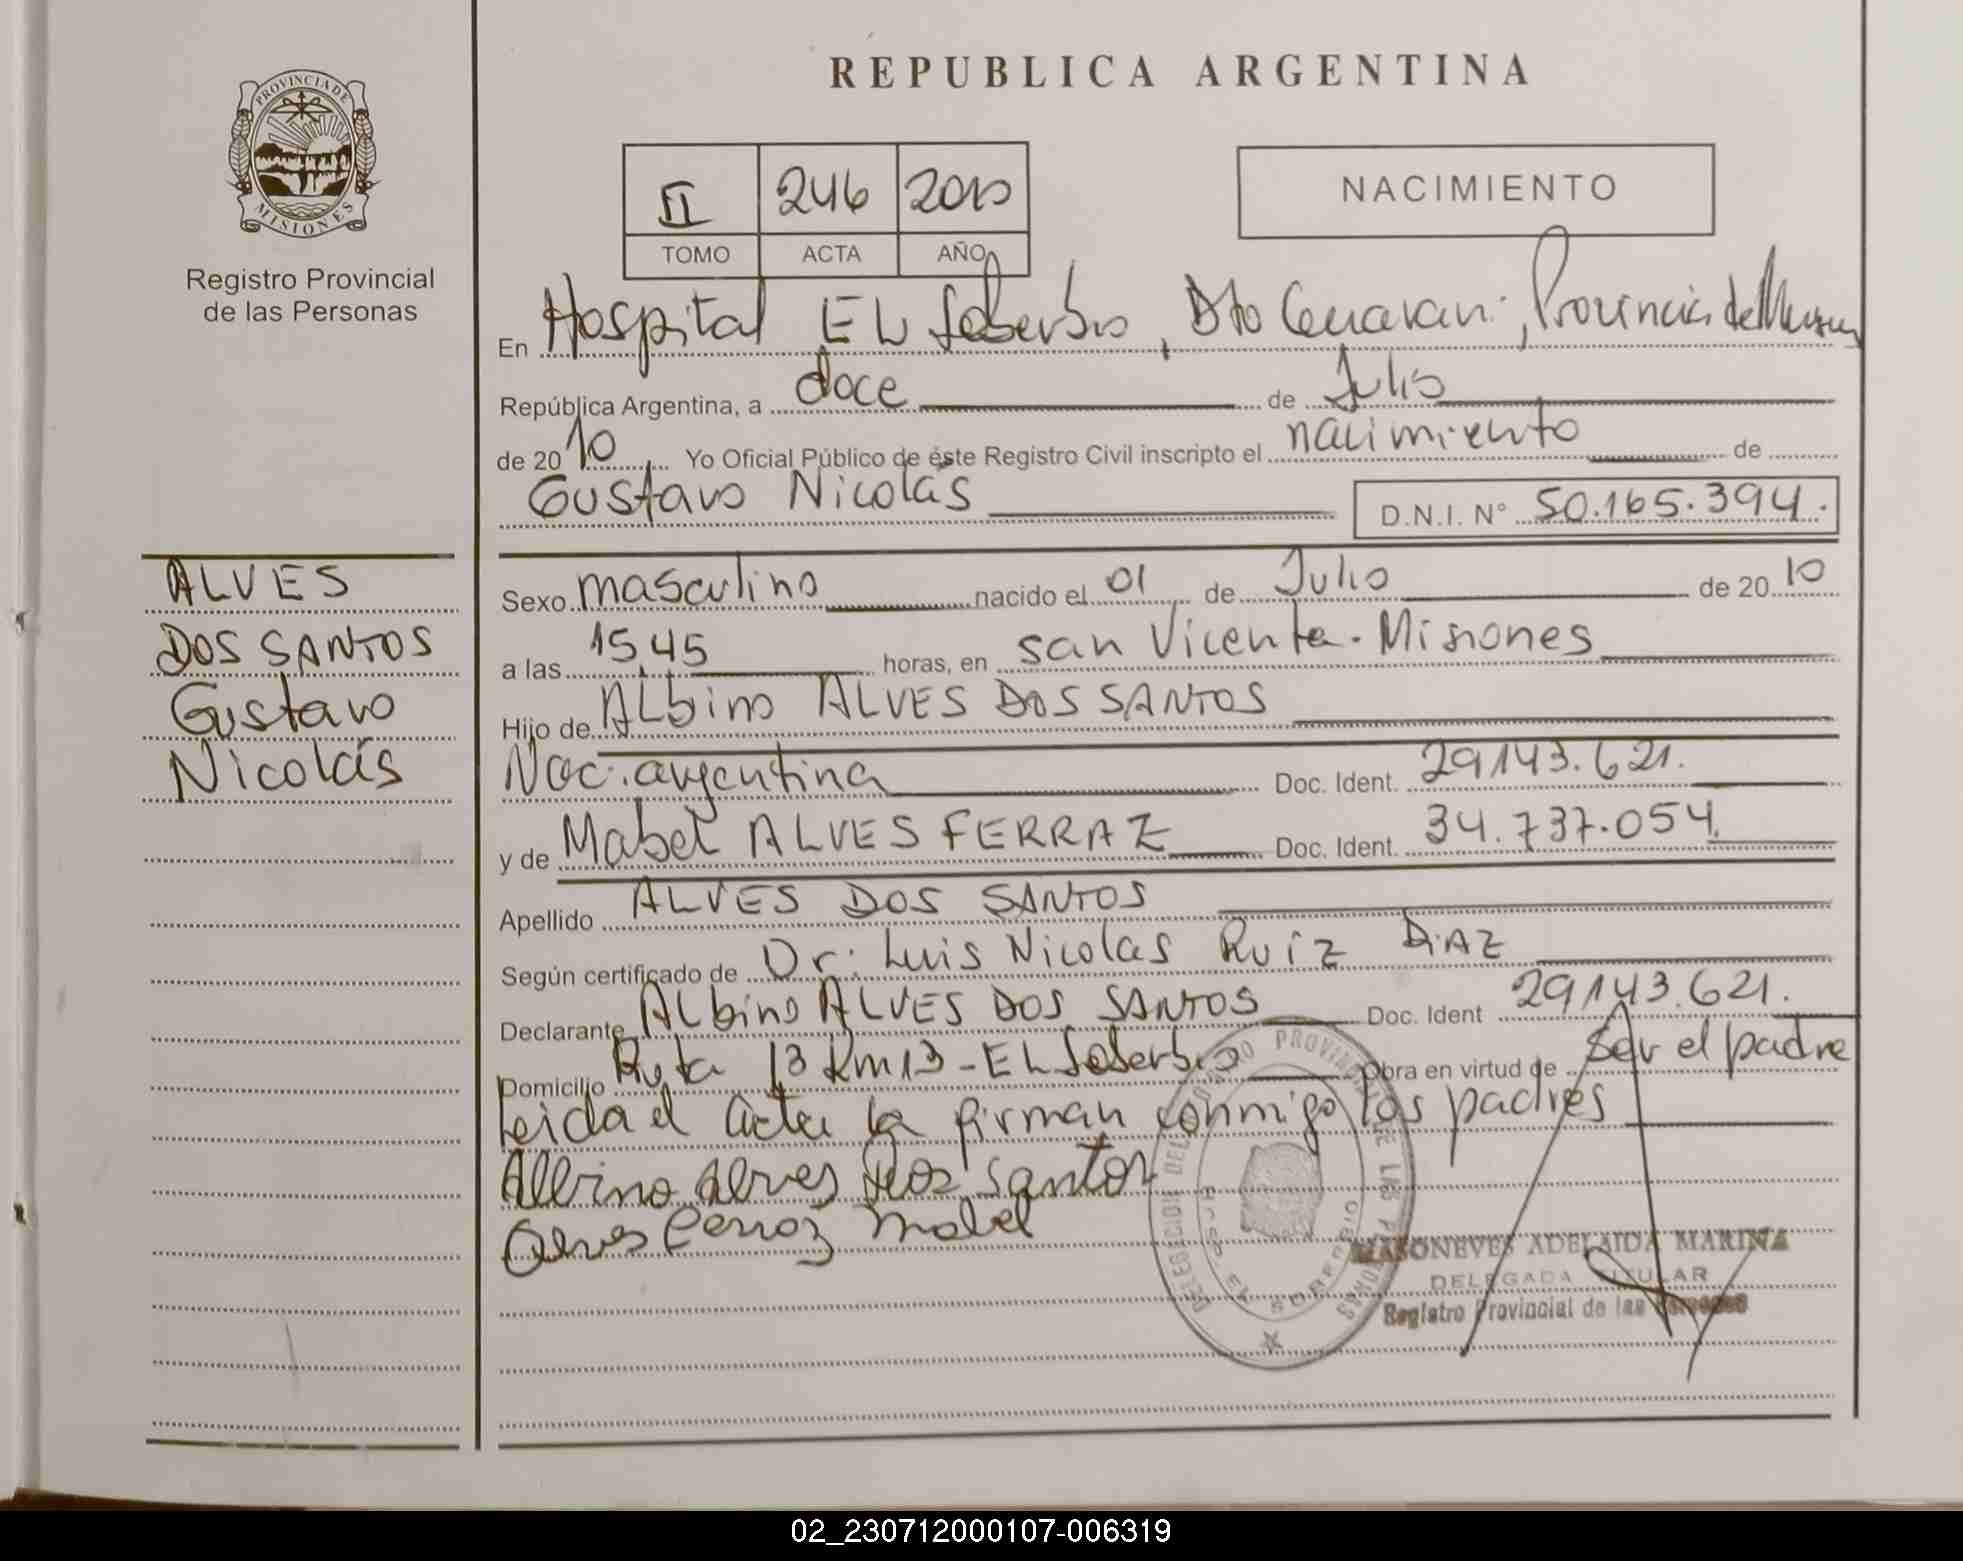 REPUBLICA ARGENTINA
PROVINCIA DE
MISIONES
Registro Provincial
de las Personas
II 246 2010
TOMO ACTA AÑO
NACIMIENTO
En Hospital EL Soberbio, Dto Guarani, Provincia de Misiones
República Argentina, a doce de Julio
de 2010 Yo Oficial Público de éste Registro Civil inscripto el nacimiento de
Gustavo Nicolás D.N.I. N° 50.165.394.
ALVES
DOS SANTOS
Gustavo
Nicolás
Sexo masculino nacido el 01 de Julio de 2010
a las 15,45 horas, en san Vicente - Misiones
Hijo de Albino ALVES DOS SANTOS
Nac. argentina Doc. Ident. 29.143.621.
y de Mabel ALVES FERRAZ Doc. Ident. 34.737.054.
Apellido ALVES DOS SANTOS
Según certificado de Dr. Luis Nicolas Ruiz DiAZ
Declarante ALbino ALVES DOS SANTOS Doc. Ident 29.143.621.
Domicilio Ruta 13 Km 13 - EL Soberbio Obra en virtud de Ser el padre
Leida el acta la firman conmigo los padres
Albino Alves Dos Santos
Alves Ferraz Mabel
MASONEVES ADELAIDA MARINA
DELEGADA TITULAR
Registro Provincial de las Personas
02_230712000107-006319